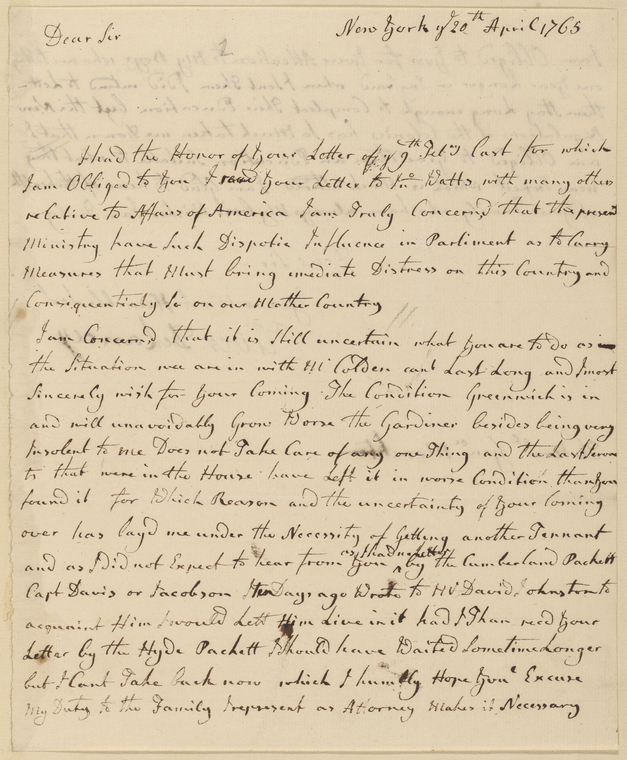 Dear Sir
New York ye 20th April 1765
I had the Honor of your Letter of ye 9th Feby last for which
I am Obliged to you I read your Letter to Jno Watts with many others
relative to Affairs of America I am Truly Concernd that the present
Ministry have Such Dispotic Influence in Parliment as to Carry
Measures that Must bring imediate Distress on this Country and
Consiquentialy So on our Mother Country
I am Concernd that it is Still uncertain what you are to do as in
the Situation we are in with Mr Colden cant Last Long and I most
Sincerely wish for your Coming The Condition Greenwich is in
and will unavoidably Grow Worse the Gardiner besides being very
Insolent to me Does not Take Care of any one Thing and the Last Serva
ts that were in the House have Left it in worse Condition than you
found it for Which Reason and the uncertainty of your Coming
over has layd me under the Necessity of Getting another Tennant
and as I did not Expect to hear from you as I had no Letter by the Cumberland Packett
Capt Davis or Jacobson I Ten Days ago Wrote to Mr David Johnston to
acquaint Him I would Lett Him Live in it had I Than recd your
Letter by the Hyde Packett I Should have Waited Sometime Longer
but I Cant Take back now which I humbly Hope you'l Excuse
My Duty to the Family I represent as Attorney Makes it Necessary